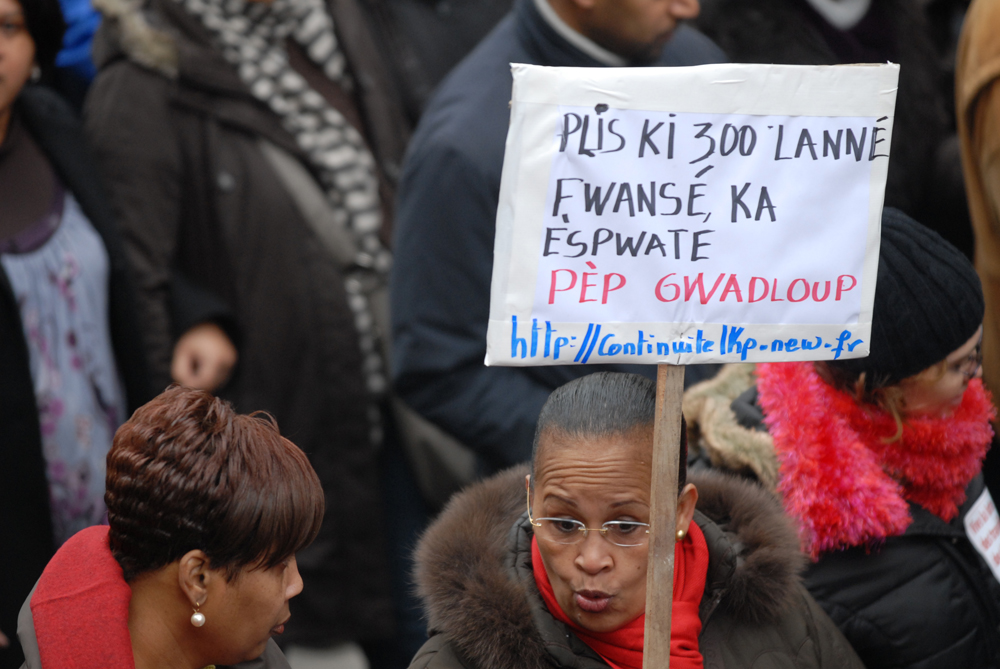 PLIS KI 300 LANNÉ
FWANSÉ, KA
ÈSPWATE
PÈP GWADLOUP
http://continuitelkp-new-.fr